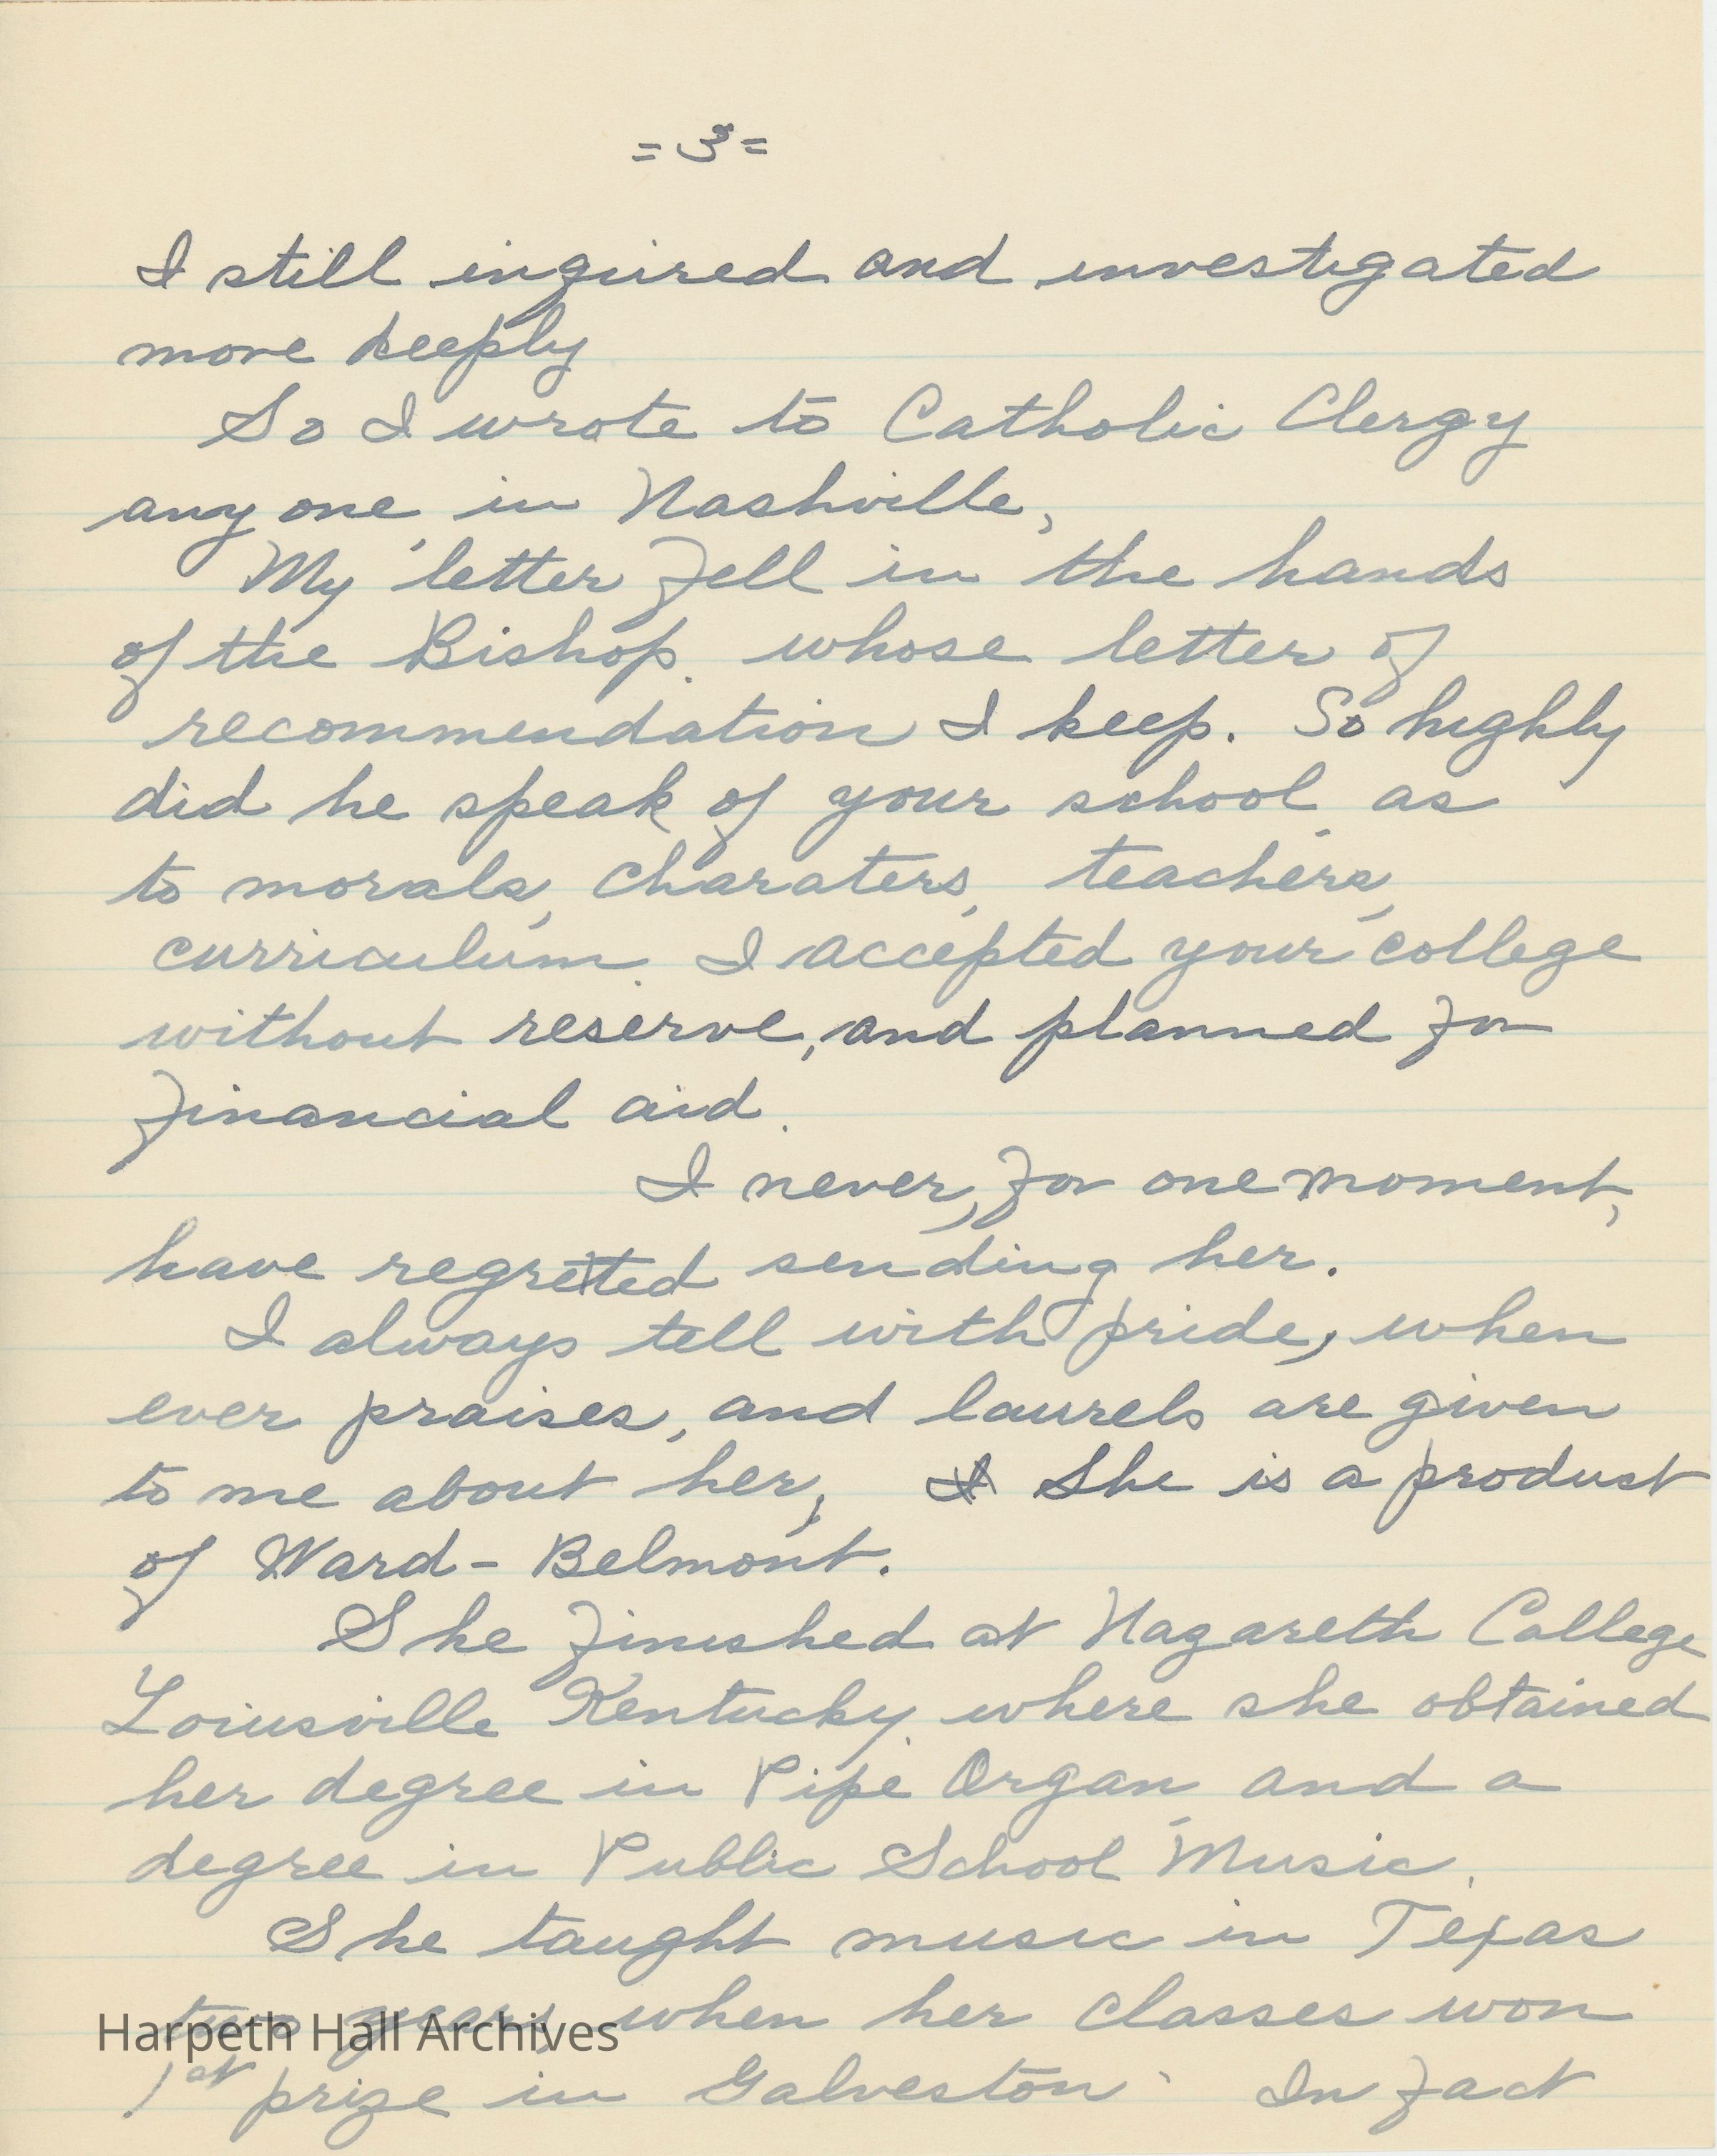 = 3 =
I still inquired and investigated
more deeply
So I wrote to Catholic Clergy
any one, in Nashville,
My letter fell in the hands
of the Bishop, whose letter of
recommendation I keep. So highly
did he speak of your school, as
to morals, charaters, teachers,
curriculum. I accepted your college
without reserve, and planned for
financial aid.
I never, for one moment,
have regretted sending her.
I always tell with pride, when
ever praises, and laurels are given
to me about her, She is a product
of Ward-Belmont.
She finished at Nazareth College
Loiusville Kentucky, where she obtained
her degree in Pipe Organ, and a
degree in Public School Music.
She taught music in Texas
two years, when her classes won
1st prize in Galveston. In fact
Harpeth Hall Archives